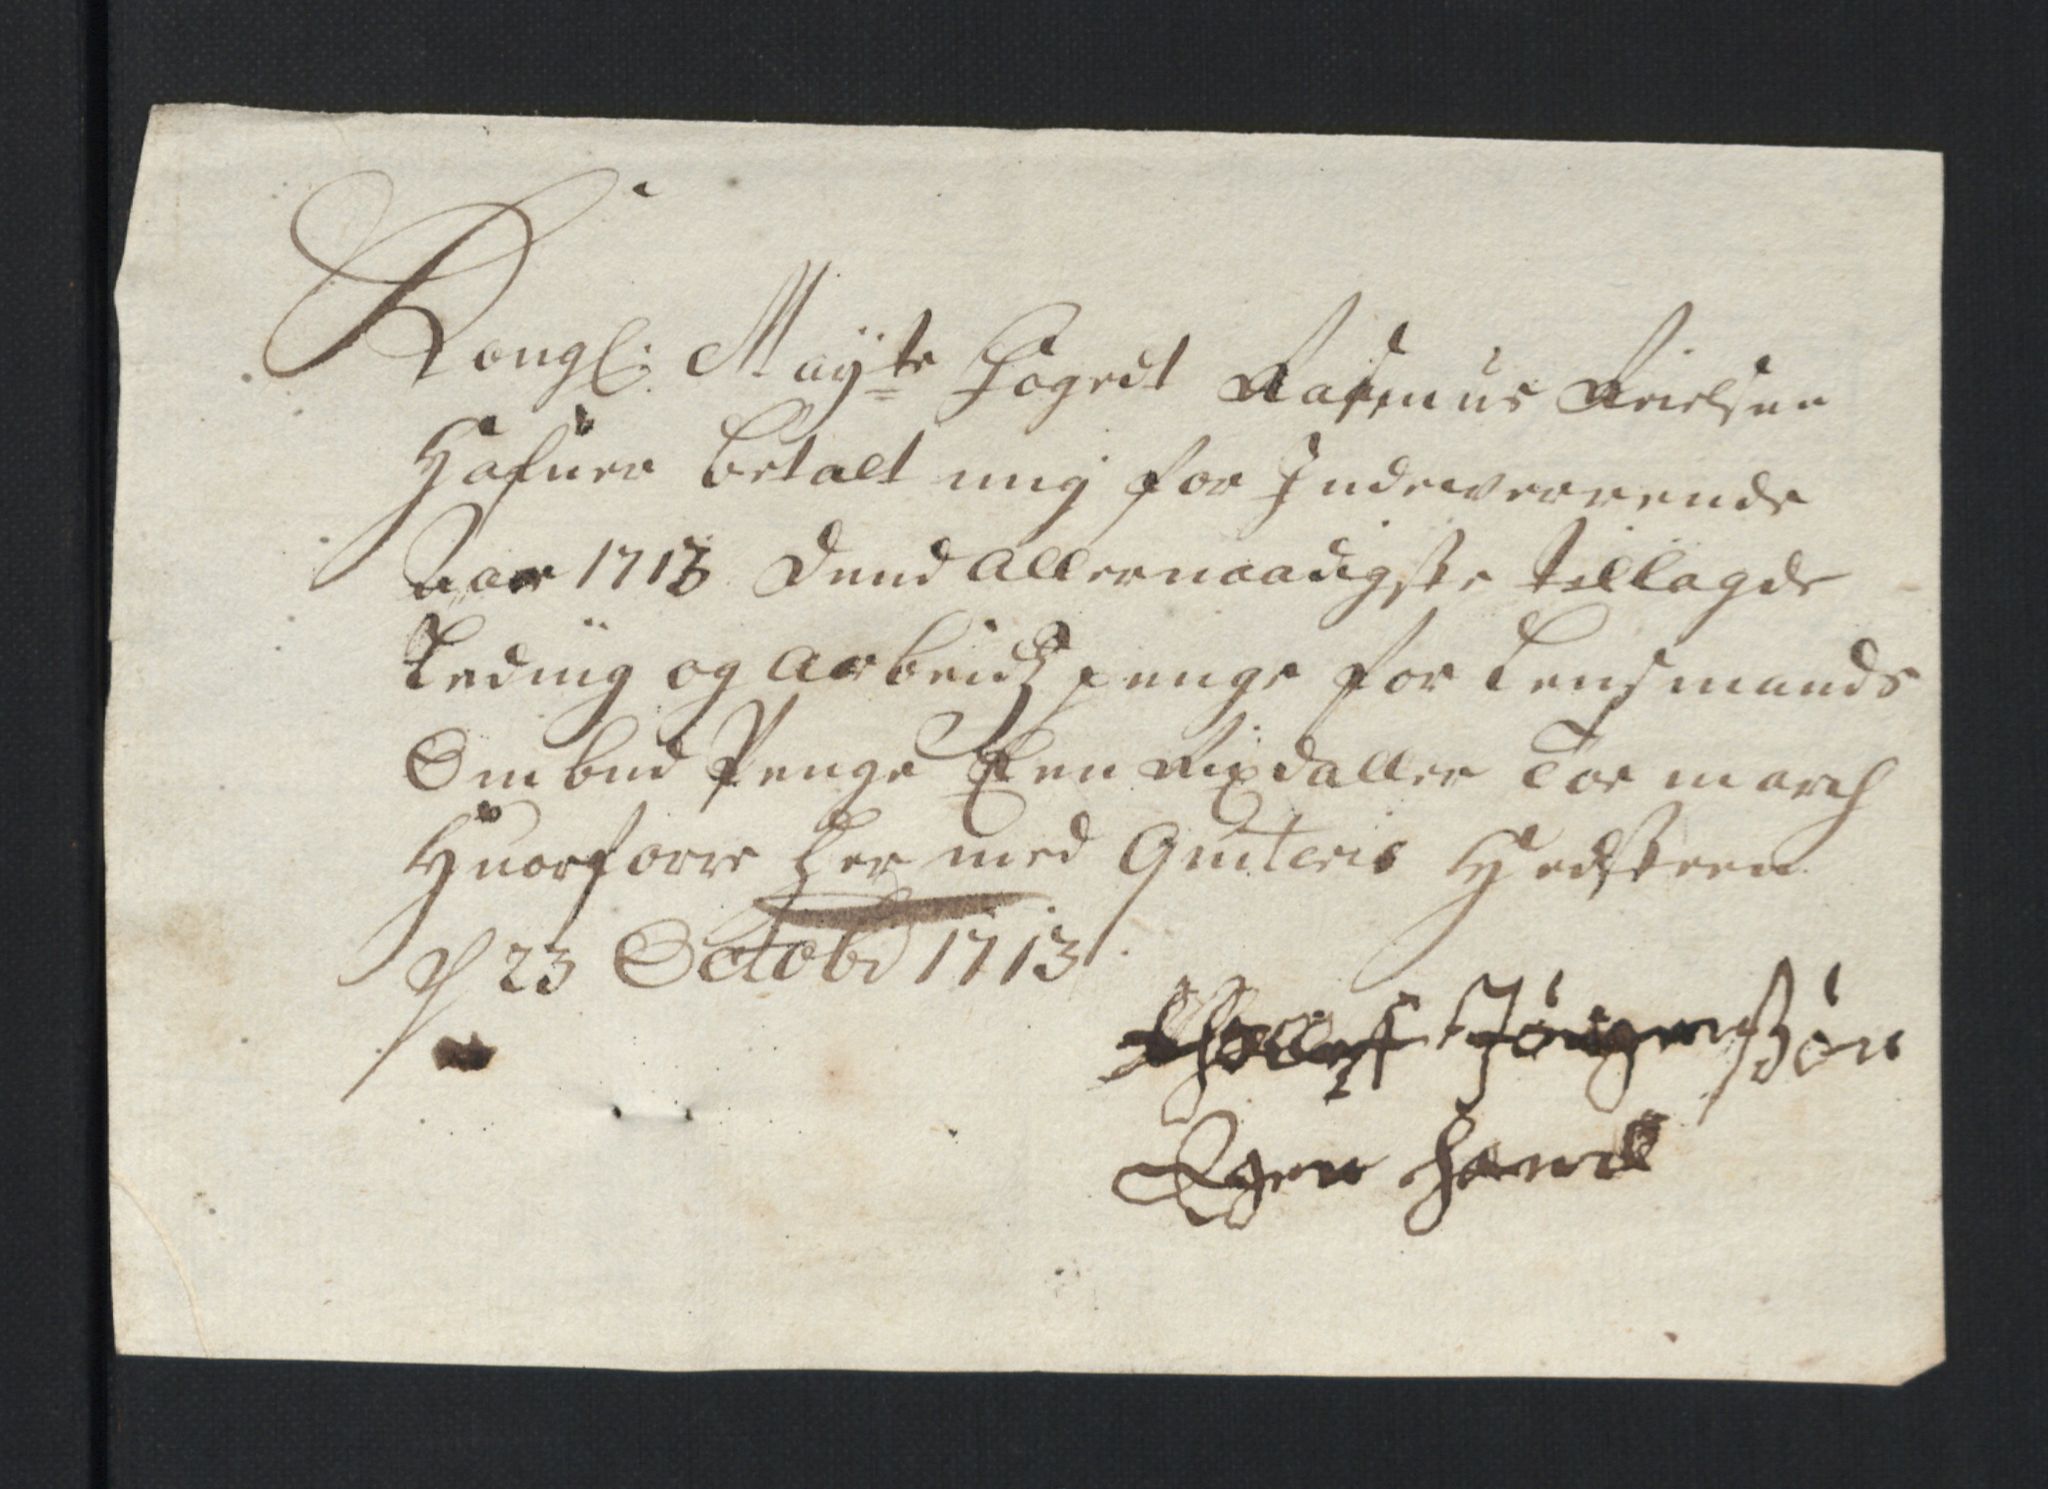 Kongl: Maÿts Fogedt Rasmus Nielsen
Hafuer betalt mig for Indewerrende
Aar 1713 Dend Allernaadigste tillagde
Leding og Arbeidtz penge for Lensmands
Ombud Penge Een Rixdaller Toe march
Huorforre her med Quiteris Hedsteen
d 23 Octobr 1713
Jörgenßön
Egen Hand